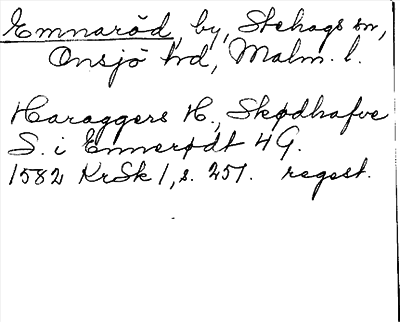 Emnaröd, by, Stehags sn,
Onsjö hd, Malm. l.
Haraggers H., Skødhafve
S. i Ennerødt 4 G.
1582 KrSk 1, s. 257. regest.